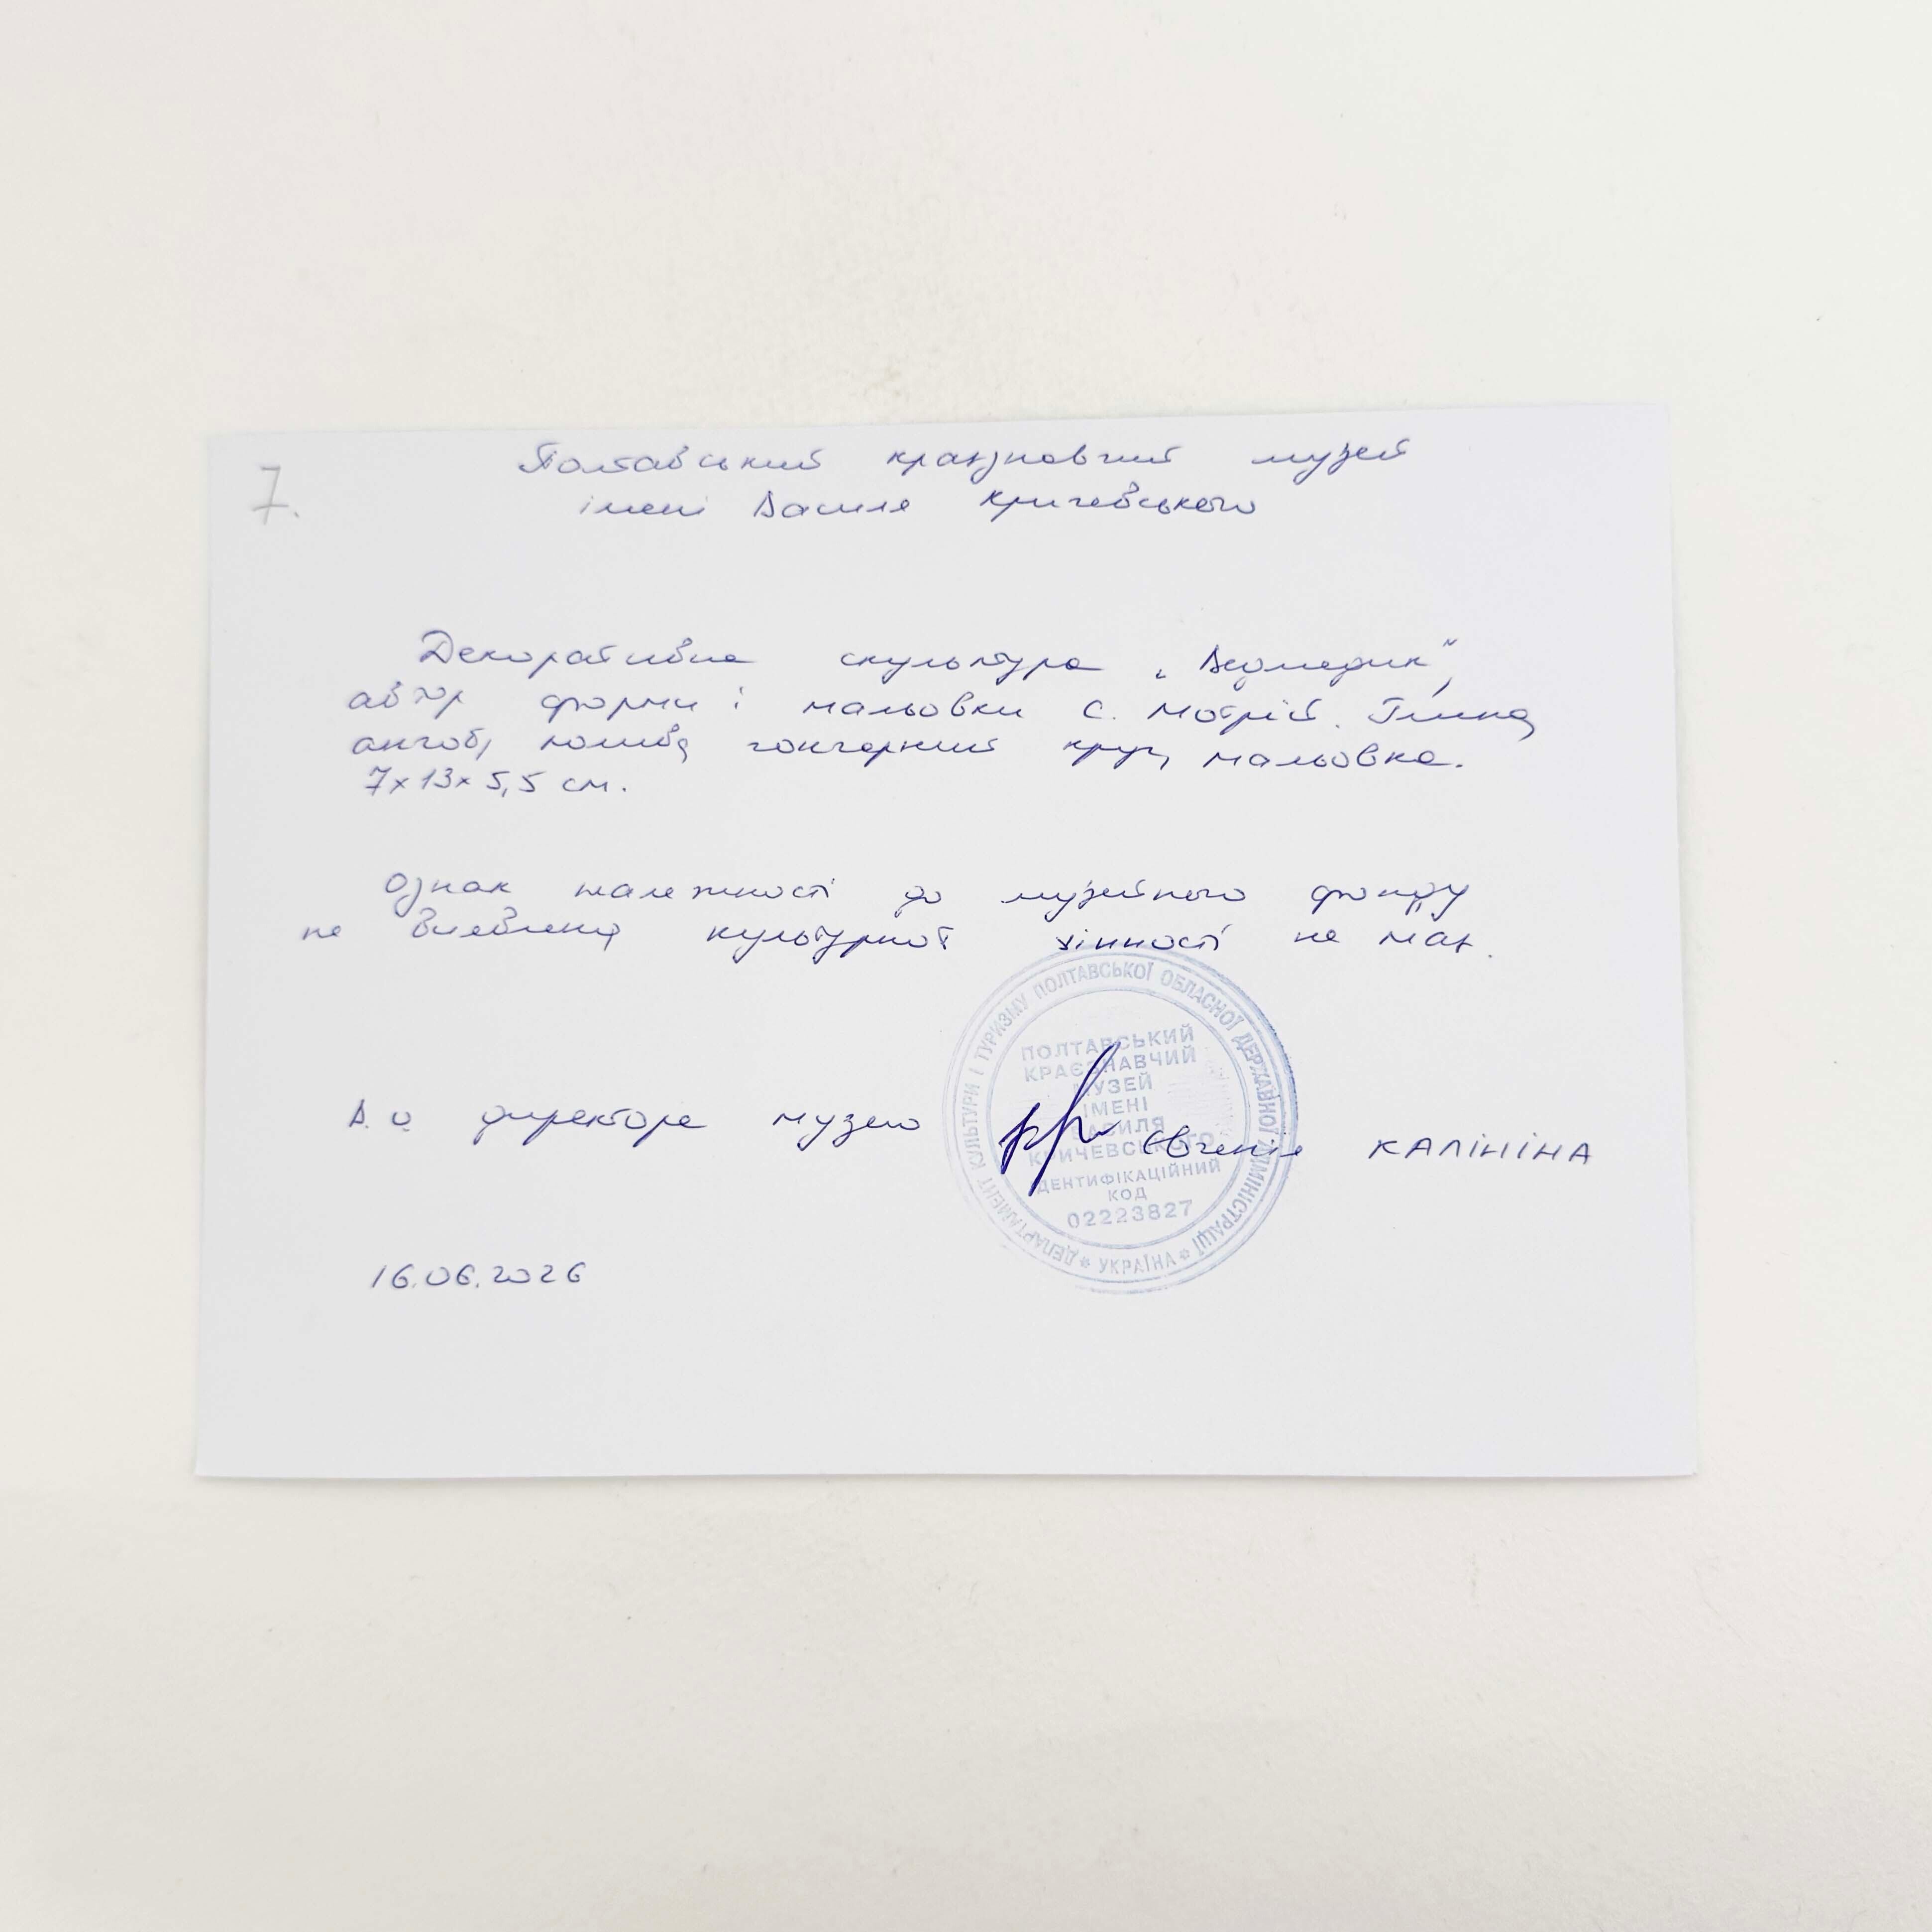 7.
Полтавський краєзнавчий музей
імені Василя Кричевського
Декоративна скульптура „Ведмедик”,
автор форми і мальовки С. Мотрій. Глина,
ангоб, полива, гончарний круг, мальовка.
7x13x5,5 см.
Ознак належності до музейного фонду
не виявлено, культурної цінності не має.
В. о. директора музею Євгенія КАЛІНІНА
16.06.2026
ДЕПАРТАМЕНТ КУЛЬТУРИ І ТУРИЗМУ ПОЛТАВСЬКОЇ ОБЛАСНОЇ ДЕРЖАВНОЇ АДМІНІСТРАЦІЇ * УКРАЇНА *
ПОЛТАВСЬКИЙ
КРАЄЗНАВЧИЙ
МУЗЕЙ
ІМЕНІ
ВАСИЛЯ
КРИЧЕВСЬКОГО
ІДЕНТИФІКАЦІЙНИЙ
КОД
02223827